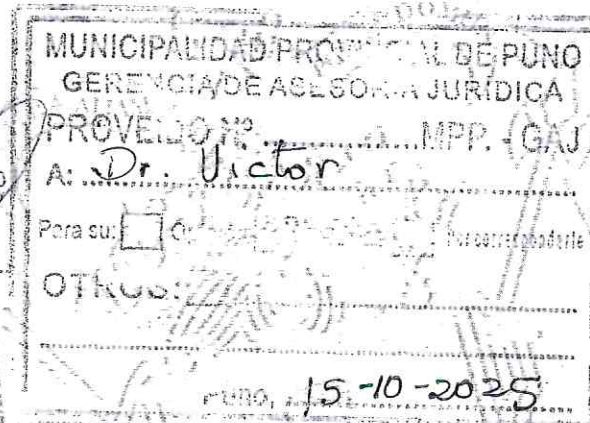 MUNICIPALIDAD PROVINCIAL DE PUNO
GERENCIA DE ASESORIA JURÍDICA
PROVEIDO Nº ................ MPP. - GAJ
A: Dr. Victor
Para su: Por corresponderle
OTROS:
PUNO, 15-10-2025